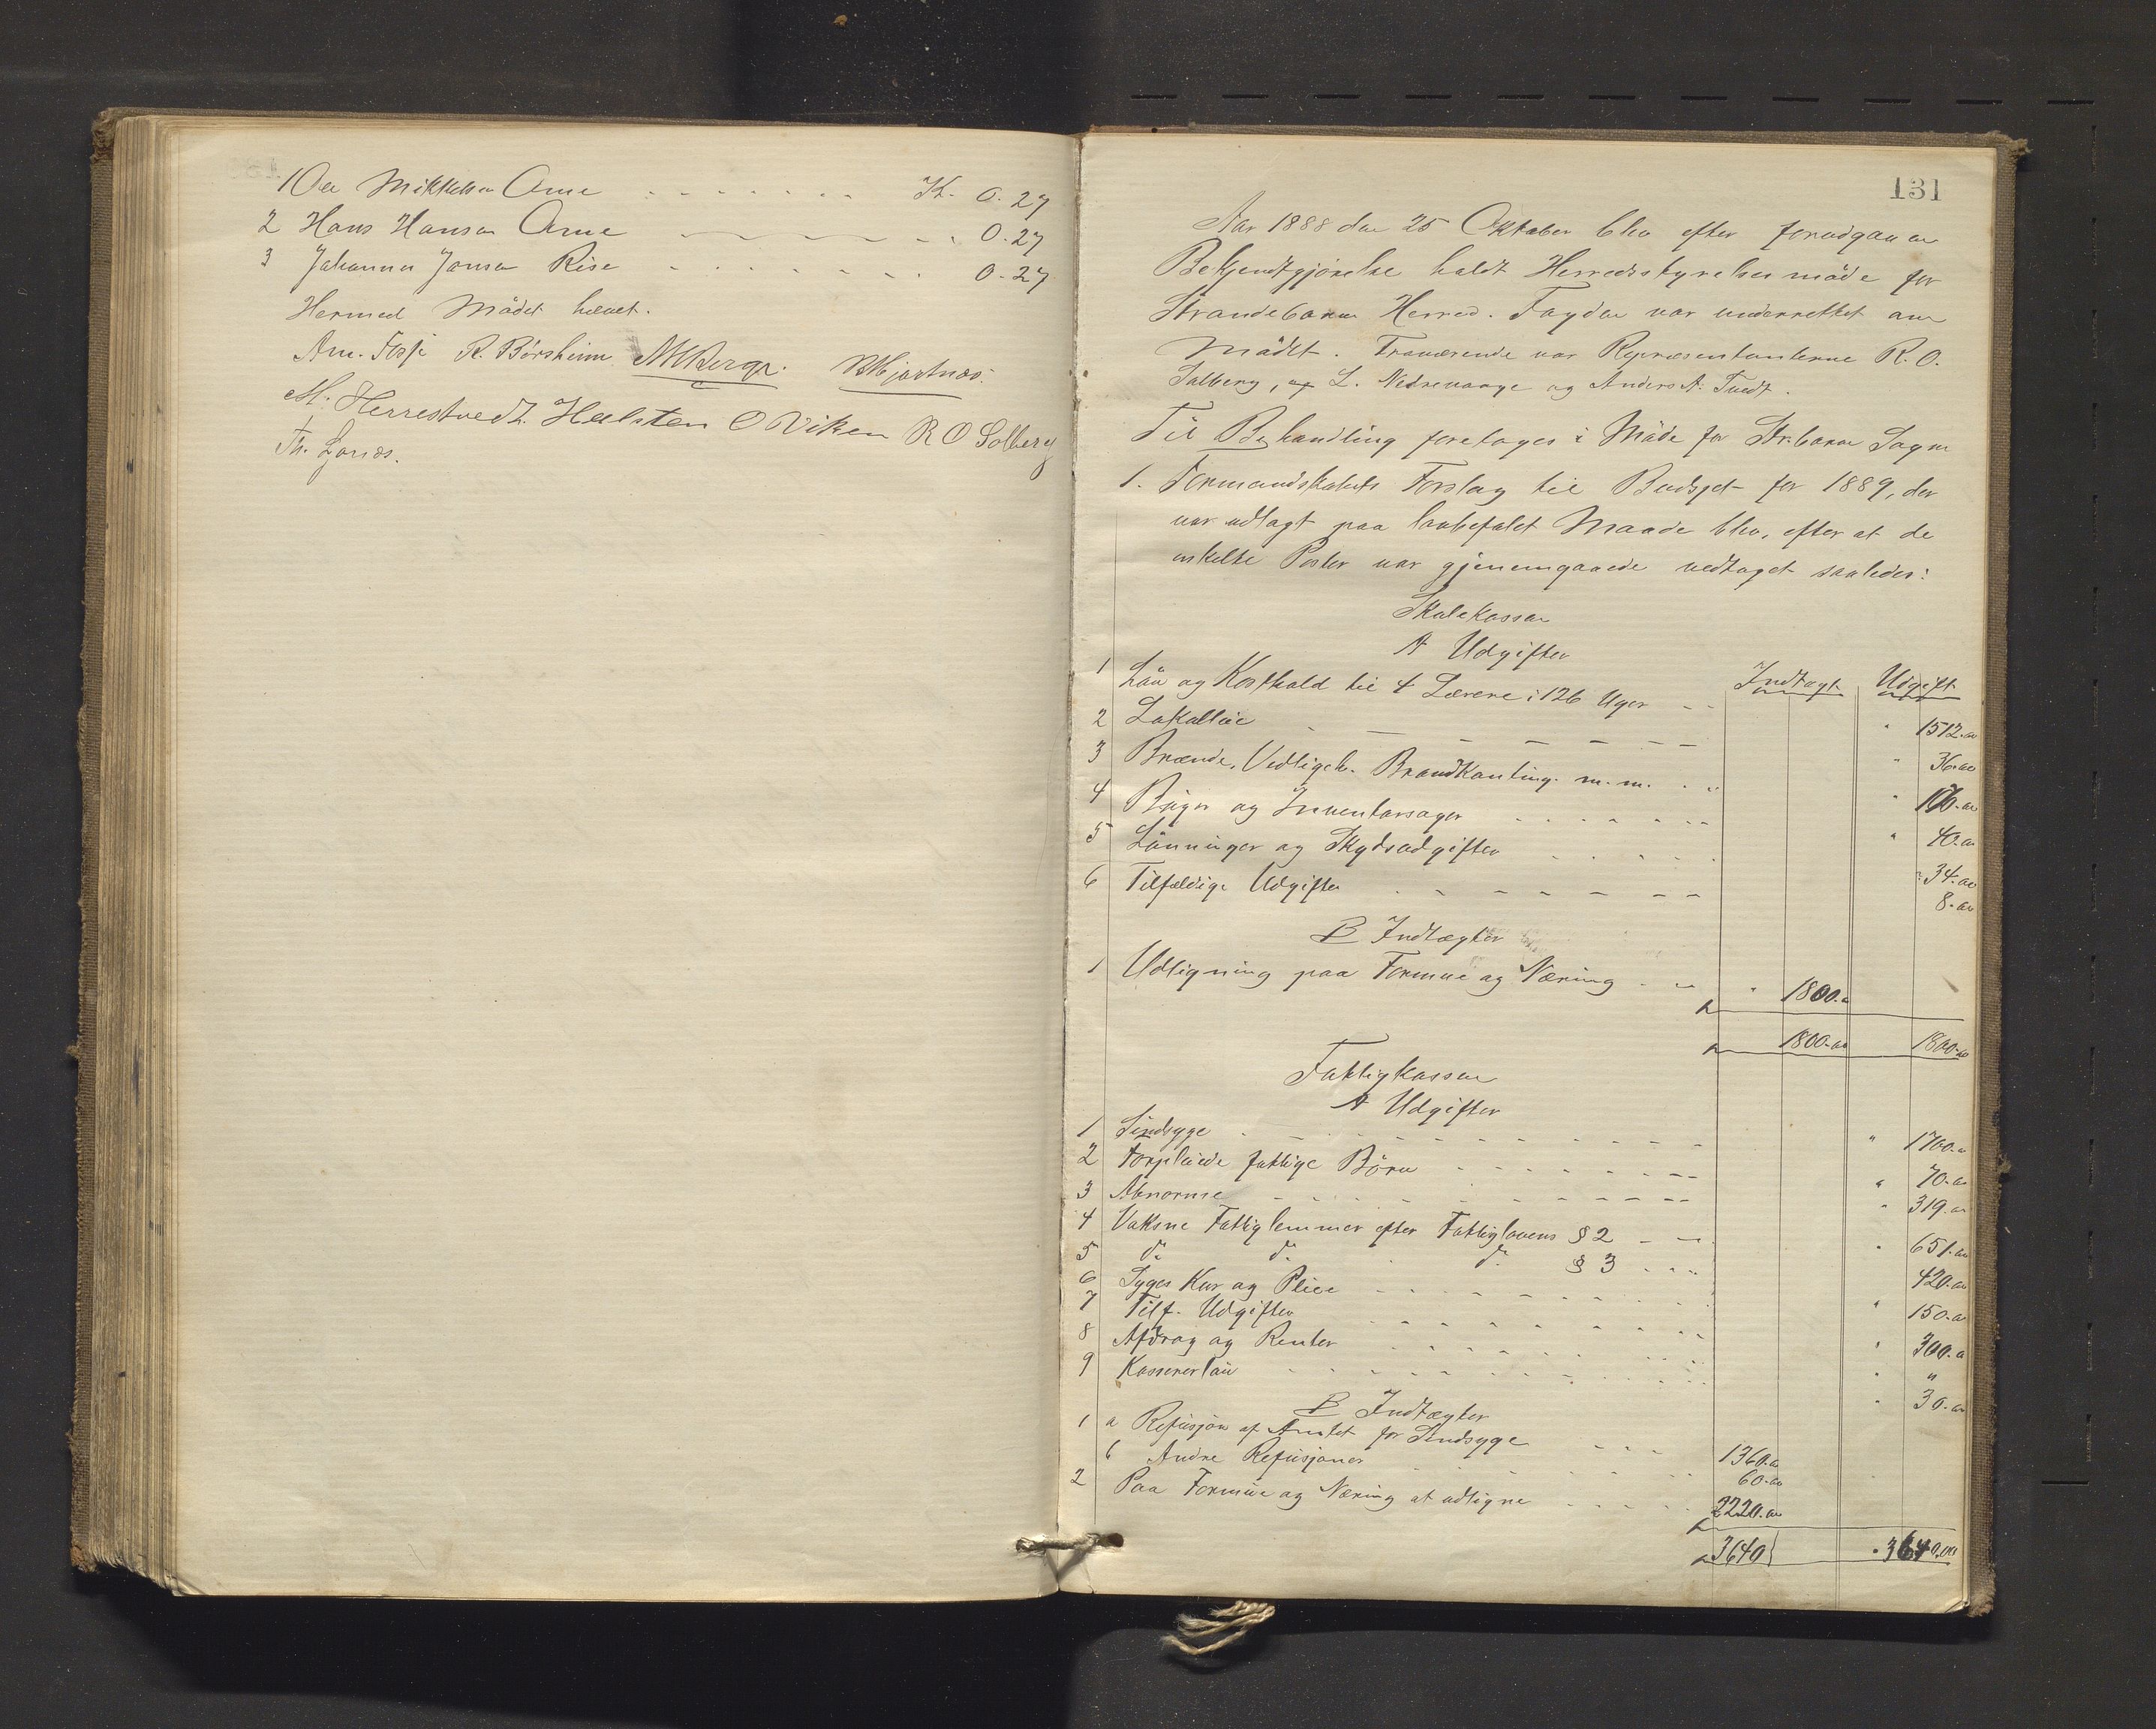 1 Ole Mikkelsen Arne - - - - - - - Kr. 0.27
2 Hans Hansen Arne - - - - - - 0.27
3 Johannes Jansen Rise - - - - - - - 0.27
Hermed Mödet hævet.
Am. Fosse R. Börsheim M H Berge. Hjartnæs.
M. Herrestvedt. Halsten O Viken R O Solberg
Th. Lönæs.
131
Aar 1888 den 25 Oktober blev efter forudgaaen
Bekjendtgjörelse holdt Herredsstyrelsesmöde for
Strandebarm Herred. Fogden var underrettet om
Mödet. Fraværende var Repræsentanterne R. O.
Solberg, L. Nedrevaage og Anders A. Tvedt.
Til Behandling foretoges i Möde for Str.barm Sogn
1. Formandskabets Forslag til Budget for 1889, der
var udlagt paa lovbefalet Maade blev, efter at de
enkelte Poster var gjennemgaaede vedtaget saaledes:
Skolekassen
A Udgifter
Indtægt Udgift
1 Lön og Kosthold til 4 Lærere i 126 Uger - - 1512.00
2 Lokalleie - - - - - - - 36.00
3 Brænde, Vedligeh. Brandkonting. m.m. - - 170.00
4 Böger og Inventarsager - - - - - - 40.00
5 Lönninger og Skydsudgifter - - - - - 34.00
6 Tilfældige Udgifter - - - - - - - 8.00
B Indtægter
1 Udligning paa Formue og Næring - - 1800.00
1800.00 1800.00
Fattigkassen
A Udgifter
1 Sindsyge - - - - - - - - - - 1700.00
2 Forpleiede fattige Börn - - - - - - - 70.00
3 Abnorme - - - - - - - - - - 319.00
4 Voksne Fattiglemmer efter Fattiglovens § 2 - - 651.00
5 do do do § 3 - - - 420.00
6 Syges Kur og Pleie - - - - - - - - 150.00
7 Tilf. Udgifter - - - - - - - - 300.00
8 Afdrag og Renter - - - - - - - "
9 Kassererlön - - - - - - - - - 30.00
B Indtægter
1 a Refusjon af Amtet for Sindsyge - - - 1360.00
b Andre Refusjoner - - - - - - 60.00
2 Paa Formue og Næring at udligne - - - - - 2220.00
3640 3640.00